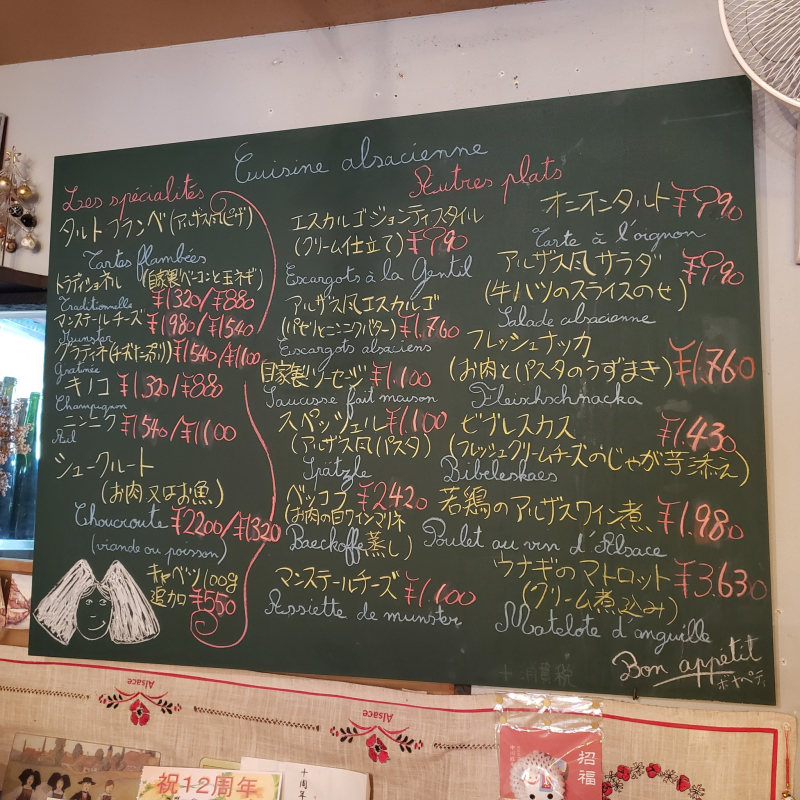 Cuisine alsacienne
Les spécialités
タルトフランベ(アルザス風ピザ)
Tartes flambées
トラディショネル(自家製ベーコンと玉ネギ)
Traditionnelle ¥1320/¥880
マンステールチーズ ¥1980/¥1540
Munster
グラティネ ¥1540/¥1100
Gratinée
キノコ ¥1320/¥880
Champignon
ニンニク ¥1540/¥1100
Ail
シュークルート
(お肉又はお魚)
Choucroute ¥2200/¥1320
(viande ou poisson)
キャベツ100g
追加 ¥550
Autres plats
エスカルゴジョンティスタイル
(クリーム仕立て) ¥990
Escargots à la Gentil
アルザス風エスカルゴ
(パセリとニンニクバター) ¥1.760
Escargots alsaciens
自家製ソーセージ ¥1.100
Saucisse fait maison
スペッツェル ¥1.100
(アルザス風パスタ)
Spätzle
ベッコフ ¥2420
(お肉の白ワインマリネ
Baeckoffe蒸し)
マンステールチーズ ¥1.100
Assiette de munster
オニオンタルト ¥990
Tarte à l'oignon
アルザス風サラダ ¥990
(牛ハツのスライスのせ)
Salade alsacienne
フレッシュナッカ
(お肉とパスタのうずまき) ¥1.760
Fleischschnacka
ビブレスカス ¥1.430
(フレッシュクリームチーズのじゃが芋添え)
Bibeleskaes
若鶏のアルザスワイン煮 ¥1.980
Poulet au vin d'Alsace
ウナギのマトロット ¥3.630
(クリーム煮込み)
Matelote d'anguille
Bon appétit
ボナペティ
Alsace
Alsace
祝12周年
十周年
招福